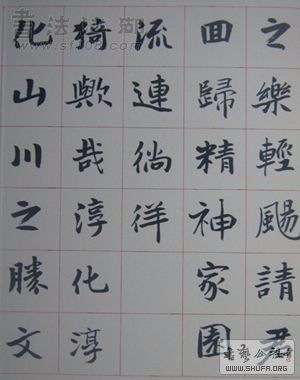 之樂輕颺請君
回歸精神家園
流連徜徉
猗歟哉淳化淳
化山川之勝文
書法江湖
www.sf108.com
書藝公社
WWW.SHUFA.ORG